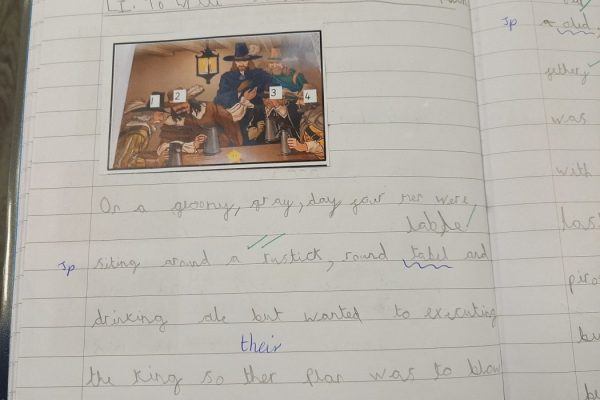 L.I. To write
1 2 3 4
On a gloomy, gray, day four men were
table
Sp siting around a rustick, round tabel and
drinking ale but wanted to executing
their
the king so ther plan was to blow
Sp a old,
was
with